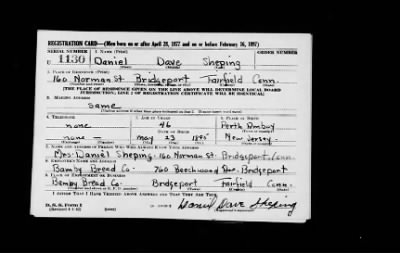 REGISTRATION CARD—(Men born on or after April 28, 1877 and on or before February 16, 1897)
SERIAL NUMBER 1. NAME (Print) ORDER NUMBER
U 1130 Daniel Dave Sheping
(First) (Middle) (Last)
2. PLACE OF RESIDENCE (Print)
160 Norman St Bridgeport Fairfield Conn.
[THE PLACE OF RESIDENCE GIVEN ON THE LINE ABOVE WILL DETERMINE LOCAL BOARD
JURISDICTION; LINE 2 OF REGISTRATION CERTIFICATE WILL BE IDENTICAL]
3. MAILING ADDRESS
same
4. TELEPHONE 5. AGE IN YEARS 6. PLACE OF BIRTH
none 46 Perth Amboy
DATE OF BIRTH
none — May 23 1895 New Jersey.
7. NAME AND ADDRESS OF PERSON WHO WILL ALWAYS KNOW YOUR ADDRESS
Mrs. Daniel Sheping 160 Norman St. Bridgeport, Conn.
8. EMPLOYER'S NAME AND ADDRESS
Bamby Bread Co. 760 Beechwood Ave. Bridgeport
9. PLACE OF EMPLOYMENT OR BUSINESS
Bamby Bread Co. Bridgeport Fairfield Conn.
I AFFIRM THAT I HAVE VERIFIED ABOVE ANSWERS AND THAT THEY ARE TRUE.
D. S. S. Form 1 Daniel Dave Sheping